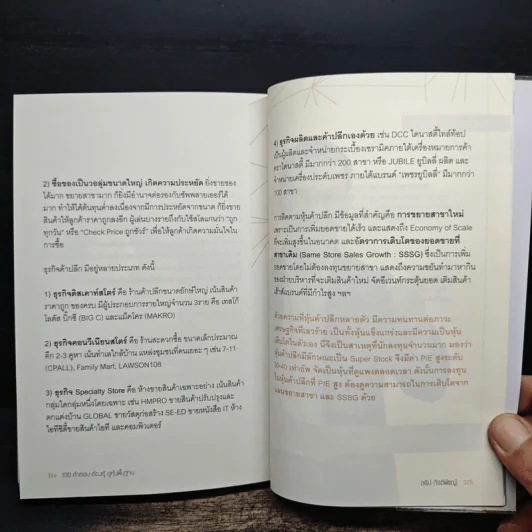 2) ซื้อของเป็นวอลุ่มขนาดใหญ่ เกิดความประหยัด ยิ่งขายของ
ได้มาก ขยายสาขามาก ก็ยิ่งมีอำนาจต่อรองกับซัพพลายเออร์ได้
มาก ทำให้ได้ต้นทุนต่ำลงเนื่องจากมีการประหยัดจากขนาด ก็ยิ่งขาย
สินค้าให้ลูกค้าราคาถูกลงอีก ผู้เล่นบางรายถึงกับใช้สโลแกนว่า "ถูก
ทุกวัน" หรือ "Check Price ถูกชัวร์" เพื่อให้ลูกค้าเกิดความมั่นใจใน
การซื้อ
ธุรกิจค้าปลีก มีอยู่หลายประเภท ดังนี้
1) ธุรกิจดิสเคาท์สโตร์ คือ ร้านค้าปลีกขนาดยักษ์ใหญ่ เน้นสินค้า
ราคาถูก ของครบ มีผู้ประกอบการรายใหญ่จำนวน 3ราย คือ เทสโก้
โลตัส บิ๊กซี (BIG C) และแม็คโคร (MAKRO)
2) ธุรกิจคอนวีเนียนสโตร์ คือ ร้านสะดวกซื้อ ขนาดเล็กประมาณ
ตึก 2-3 คูหา เน้นทำเลใกล้บ้าน แหล่งชุมชนที่คนเยอะ ๆ เช่น 7-11
(CPALL), Family Mart, LAWSON108
3) ธุรกิจ Specialty Store คือ ห้างขายสินค้าเฉพาะอย่าง เน้นสินค้า
กลุ่มใดกลุ่มหนึ่งโดยเฉพาะ เช่น HMPRO ขายสินค้าปรับปรุงและ
ตกแต่งบ้าน GLOBAL ขายวัสดุก่อสร้าง SE-ED ขายหนังสือ IT ห้าง
ไอทีซิตี้ขายสินค้าไอที และคอมพิวเตอร์
324 100 คำตอบ ต้องรู้ ดูหุ้นพื้นฐาน
4) ธุรกิจผลิตและค้าปลีกเองด้วย เช่น DCC ไดนาสตี้ไทล์ท้อป
เป็นผู้ผลิตและจำหน่ายกระเบื้องเซรามิคภายใต้เครื่องหมายการค้า
ตราไดนาสตี้ มีมากกว่า 200 สาขา หรือ JUBILE ยูบิลลี่ ผลิต และ
จำหน่ายเครื่องประดับเพชร ภายใต้แบรนด์ "เพชรยูบิลลี่" มีมากกว่า
100 สาขา
การติดตามหุ้นค้าปลีก มีข้อมูลที่สำคัญคือ การขยายสาขาใหม่
เพราะเป็นการเพิ่มยอดขายได้เร็ว และแสดงถึง Economy of Scale
ที่จะเพิ่มสูงขึ้นในอนาคต และอัตราการเติบโตของยอดขายที่
สาขาเดิม (Same Store Sales Growth : SSSG) ซึ่งเป็นการเพิ่ม
ยอดขายโดยไม่ต้องลงทุนขยายสาขา แสดงถึงความขยันทำมาหากิน
ของฝ่ายบริหารที่จะเติมสินค้าใหม่ จัดอีเวนท์กระตุ้นยอด เติมสินค้า
เฮ้าส์แบรนด์ที่มีกำไรสูง ฯลฯ
ด้วยความที่หุ้นค้าปลีกหลายตัว มีความทนทานต่อภาวะ
เศรษฐกิจที่เลวร้าย เป็นทั้งหุ้นแข็งแกร่งและมีความเป็นหุ้น
เติบโตในตัวเอง นี่จึงเป็นสาเหตุที่นักลงทุนจำนวนมาก มองว่า
หุ้นค้าปลีกมีลักษณะเป็น Super Stock จึงมีค่า P/E สูงระดับ
30-40 เท่าอัพ จัดเป็นหุ้นที่ดูแพงตลอดเวลา ดังนั้นการลงทุน
ในหุ้นค้าปลีกที่ P/E สูง ต้องดูความสามารถในการเติบโตจาก
แผนขยายสาขา และ SSSG ด้วย
325